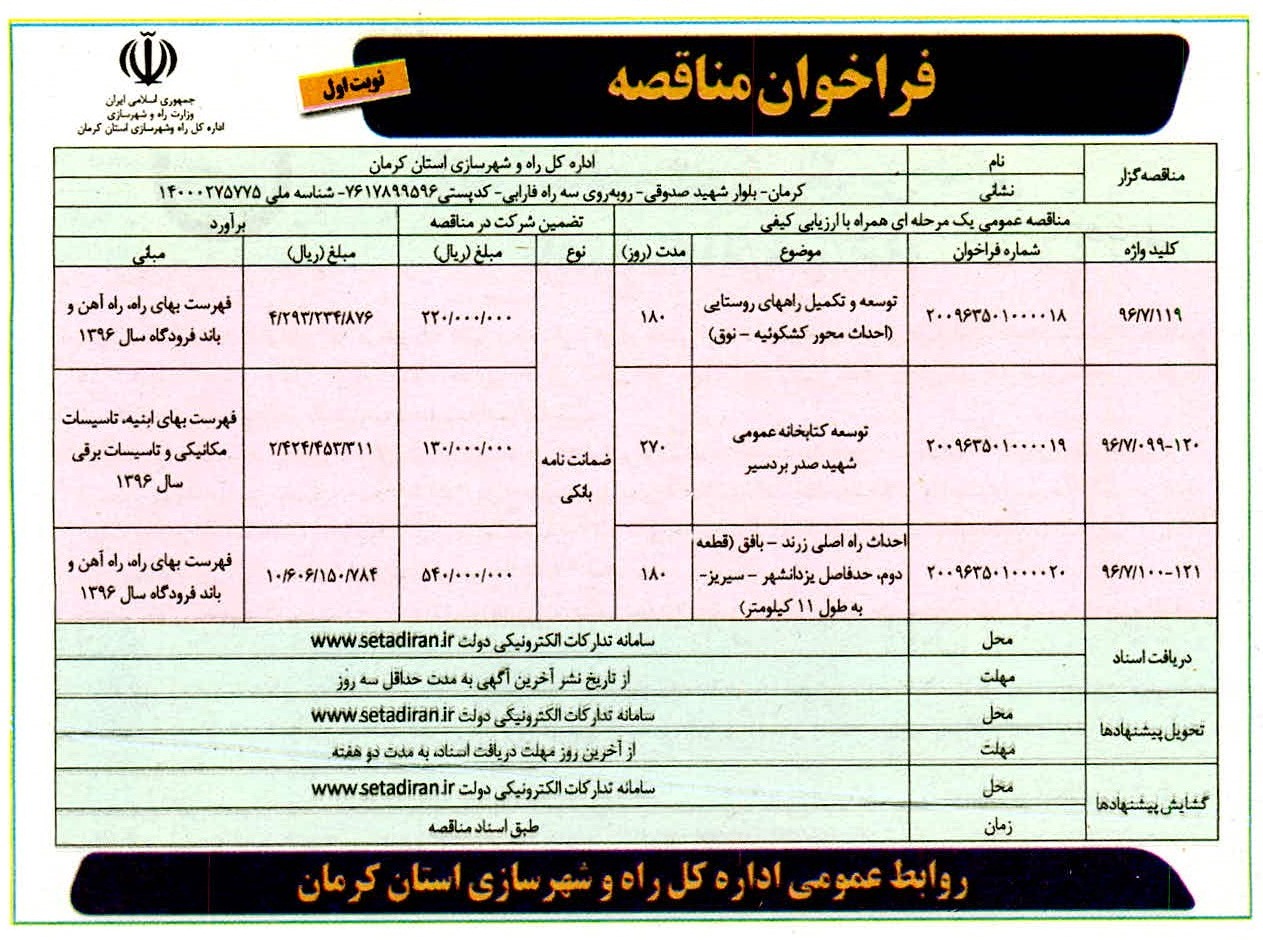 فراخوان مناقصه
نوبت اول
جمهوری اسلامی ایران
وزارت راه و شهرسازی
اداره کل راه وشهرسازی استان کرمان
مناقصه گزار
نام
اداره کل راه و شهرسازی استان کرمان
نشانی
کرمان- بلوار شهید صدوقی- روبه‌روی سه راه فارابی- کدپستی۷۶۱۷۸۹۹۵۹۶- شناسه ملی ۱۴۰۰۰۲۷۵۷۷۵
مناقصه عمومی یک مرحله ای همراه با ارزیابی کیفی
تضمین شرکت در مناقصه
برآورد
کلید واژه
شماره فراخوان
موضوع
مدت (روز)
نوع
مبلغ (ریال)
مبلغ (ریال)
مبنی
۹۶/۷/۱۱۹
۲۰۰۹۶۳۵۰۱۰۰۰۰۱۸
توسعه و تکمیل راههای روستایی
(احداث محور کشکوئیه - نوق)
۱۸۰
ضمانت نامه
بانکی
۲۲۰/۰۰۰/۰۰۰
۴/۲۹۳/۲۳۴/۸۷۶
فهرست بهای راه، راه آهن و
باند فرودگاه سال ۱۳۹۶
۹۶/۷/۰۹۹-۱۲۰
۲۰۰۹۶۳۵۰۱۰۰۰۰۱۹
توسعه کتابخانه عمومی
شهید صدر بردسیر
۲۷۰
۱۳۰/۰۰۰/۰۰۰
۲/۴۲۴/۴۵۳/۳۱۱
فهرست بهای ابنیه، تاسیسات
مکانیکی و تاسیسات برقی
سال ۱۳۹۶
۹۶/۷/۱۰۰-۱۲۱
۲۰۰۹۶۳۵۰۱۰۰۰۰۲۰
احداث راه اصلی زرند - بافق (قطعه
دوم، حدفاصل یزدانشهر - سیریز-
به طول ۱۱ کیلومتر)
۱۸۰
۵۴۰/۰۰۰/۰۰۰
۱۰/۶۰۶/۱۵۰/۷۸۴
فهرست بهای راه، راه آهن و
باند فرودگاه سال ۱۳۹۶
دریافت اسناد
محل
سامانه تدارکات الکترونیکی دولت www.setadiran.ir
مهلت
از تاریخ نشر آخرین آگهی به مدت حداقل سه روز
تحویل پیشنهادها
محل
سامانه تدارکات الکترونیکی دولت www.setadiran.ir
مهلت
از آخرین روز مهلت دریافت اسناد، به مدت دو هفته
گشایش پیشنهادها
محل
سامانه تدارکات الکترونیکی دولت www.setadiran.ir
زمان
طبق اسناد مناقصه
روابط عمومی اداره کل راه و شهرسازی استان کرمان